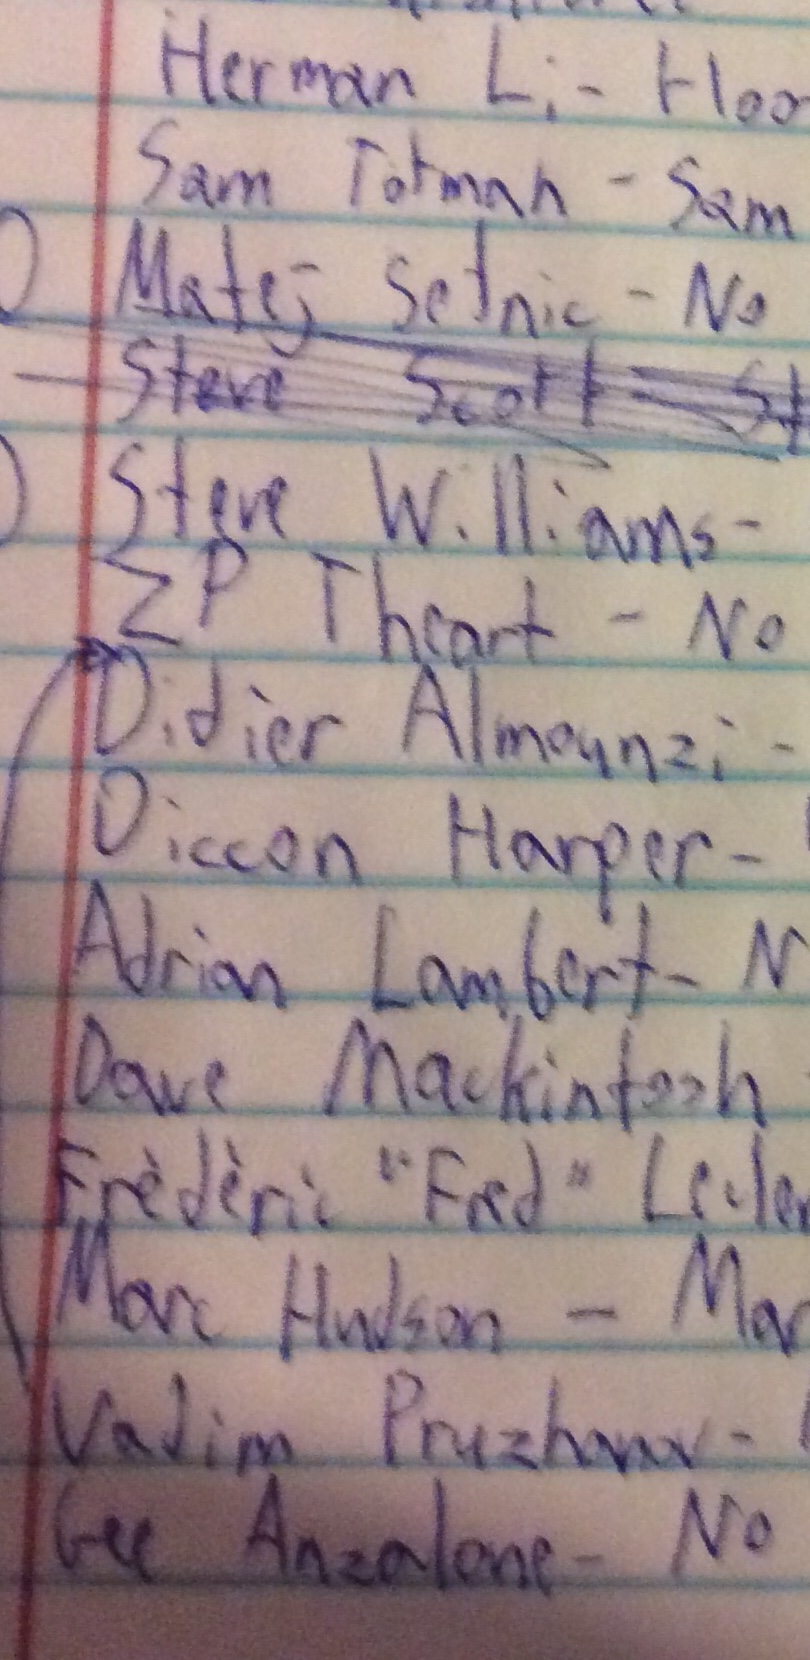 Herman Li - Hoo
Sam Totman - Sam
Matej Setnic - No
Steve Scott - St
Steve Williams -
ZP Theart - No
Didier Almounzi -
Diccon Harper -
Adrian Lambert - N
Dave Mackintosh
Frèdèric "Fred" Lecler
Marc Hudson - Mar
Vadim Pruzhanov -
Gee Anzalone - No